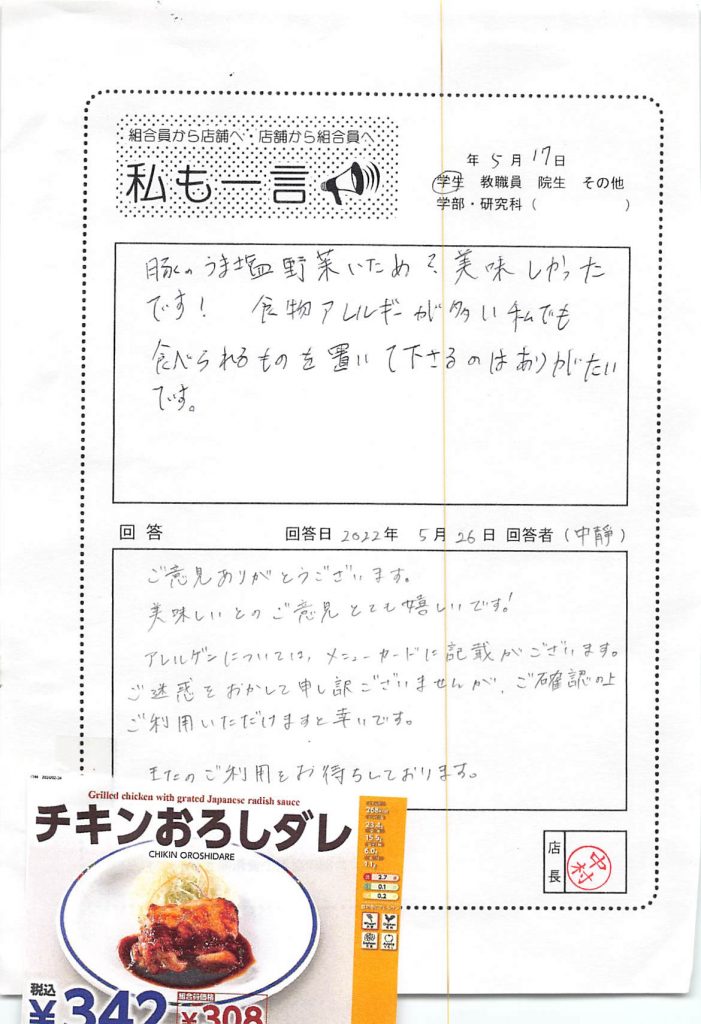 組合員から店舗へ・店舗から組合員へ
私も一言
年 5月 17日
学生 教職員 院生 その他
学部・研究科( )
豚のうま塩野菜いため?美味しかった
です! 食物アレルギーが多い私でも
食べられるものを置いて下さるのはありがたい
です。
回答 回答日 2022年 5月 26日 回答者(中靜)
ご意見ありがとうございます。
美味しいとのご意見とても嬉しいです!
アレルゲンについては、メニューカードに記載がございます。
ご迷惑をおかして申し訳ございませんが、ご確認の上
ご利用いただけますと幸いです。
またのご利用をお待ちしております。
店長 中村
Grilled chicken with grated Japanese radish sauce
チキンおろしダレ
CHIKIN OROSHIDARE
268kcal
23.4g
15.5g
6.0g
1.1g
2.7
0.1
0.2
税込 ¥342
組合員価格 ¥308